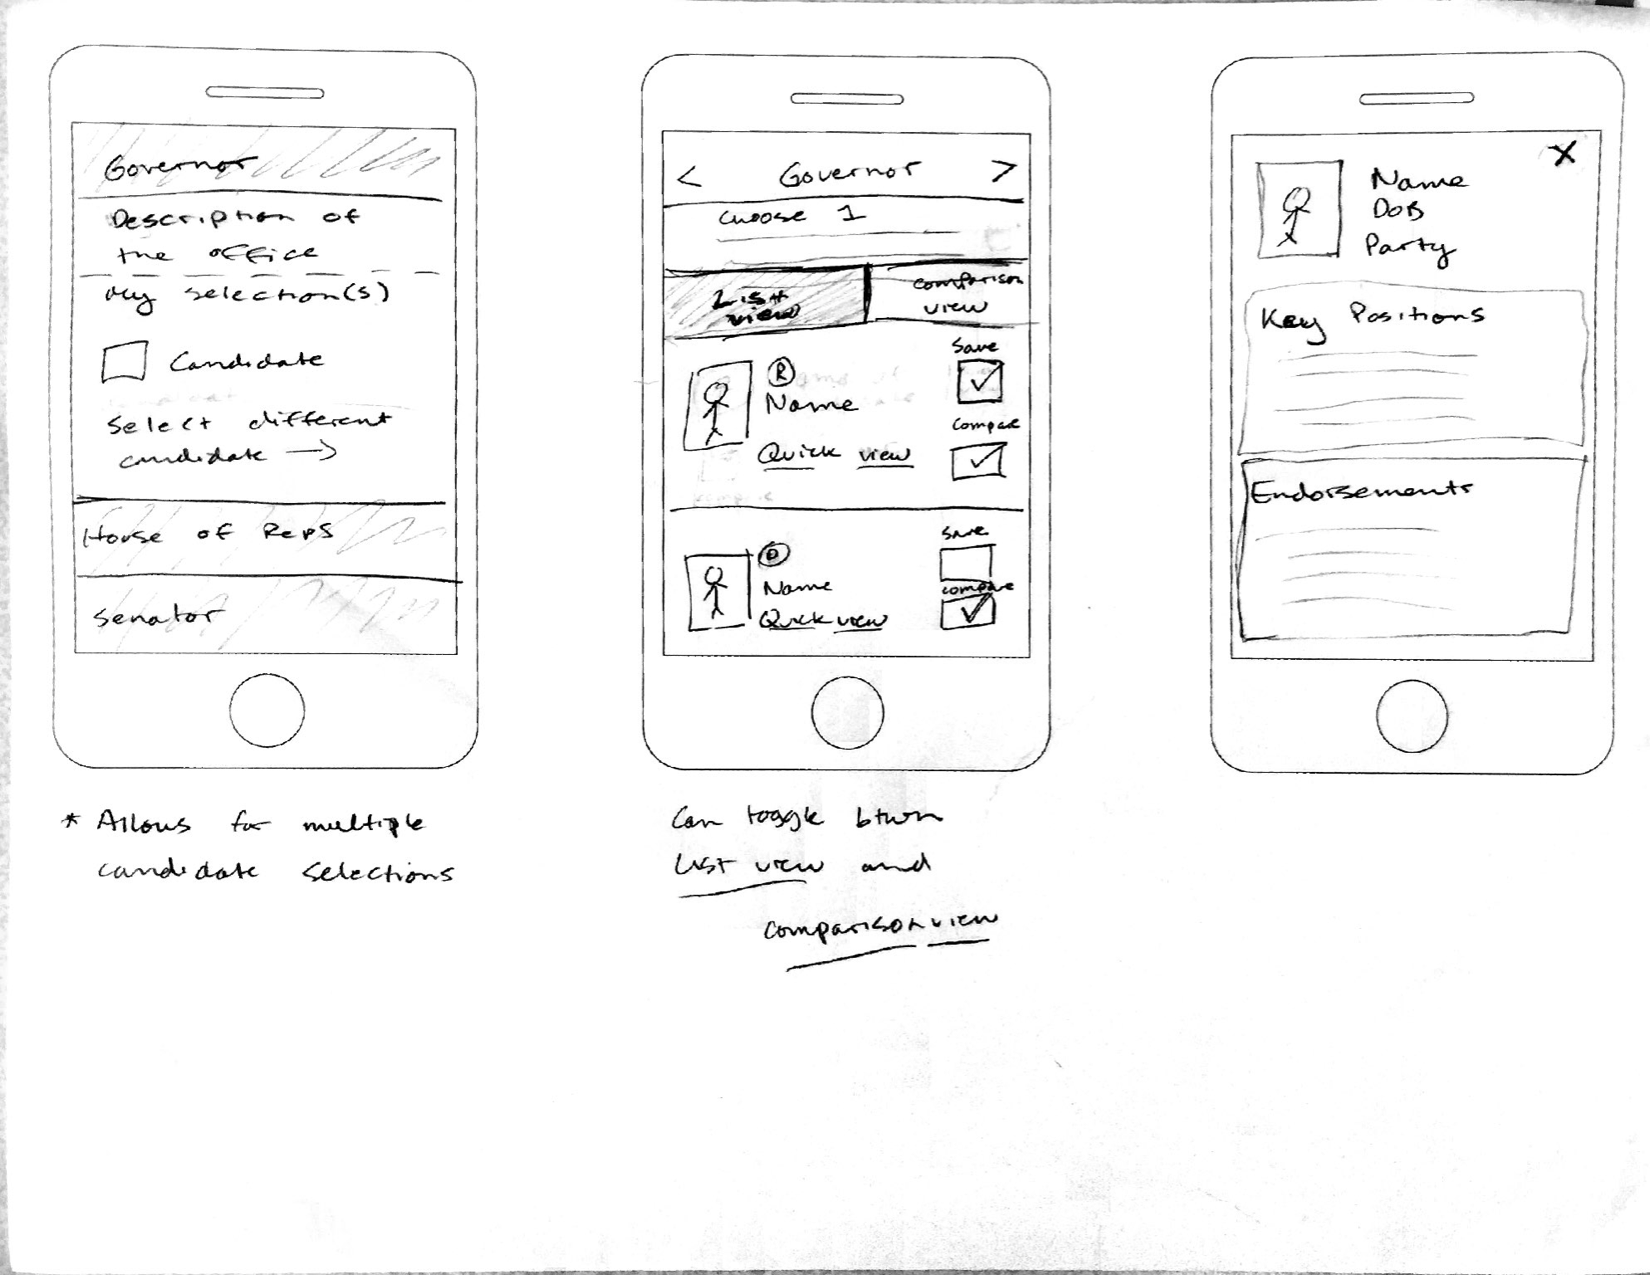 Governor
Description of
the office
My selection(s)
Candidate
Select different
candidate →
House of Reps
Senator
* Allows for multiple
candidate selections
< Governor >
Choose 1
List
view
comparison
view
Save
R
Name
compare
Quick view
Save
Name
compare
Quick view
Can toggle btwn
List view and
comparison view
X
Name
DOB
Party
Key Positions
Endorsements